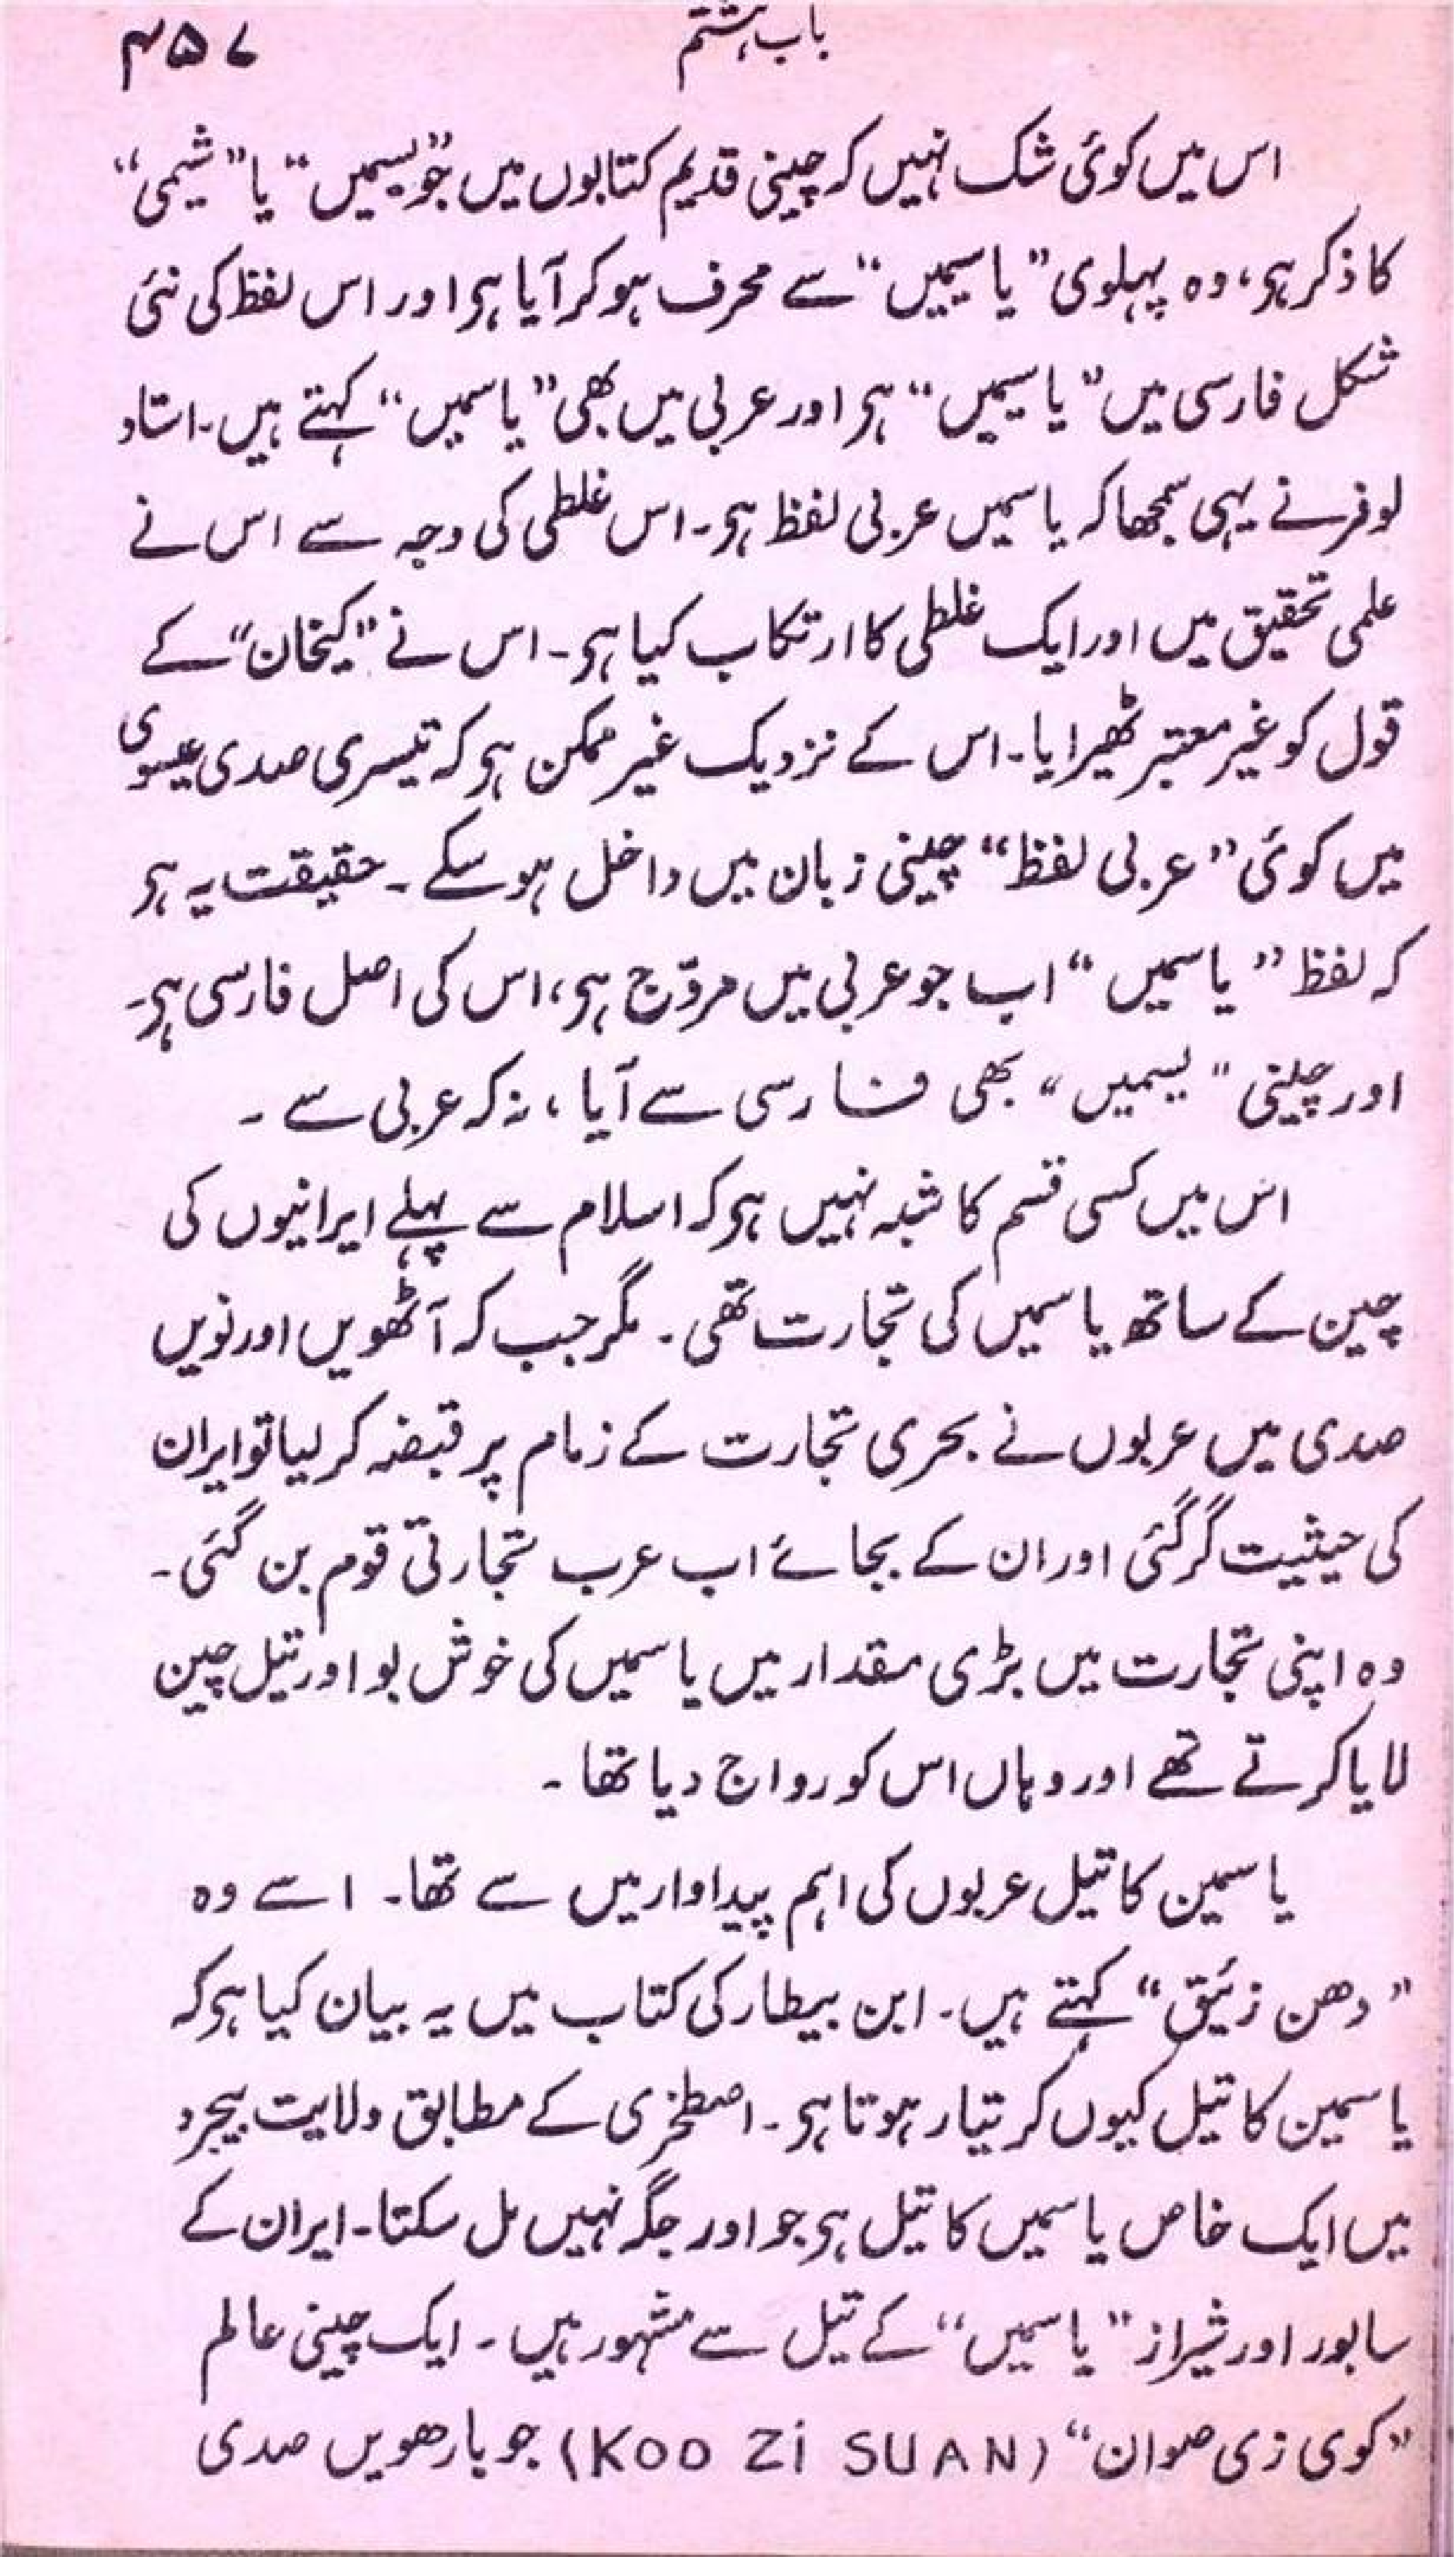 باب ہشتم ۴۵۷
اس میں کوئی شک نہیں کہ چینی قدیم کتابوں میں جو ”یسمیں“ یا ”شیمی“
کا ذکر ہو، وہ پہلوی ”یاسیمیں“ سے محرف ہو کر آیا ہو اور اس لفظ کی نئی
شکل فارسی میں ”یاسیمیں“ ہو اور عربی میں بھی ”یاسمیں“ کہتے ہیں۔ استاد
لوفر نے یہی سمجھا کہ یاسمیں عربی لفظ ہو۔ اس غلطی کی وجہ سے اس نے
علمی تحقیق میں اور ایک غلطی کا ارتکاب کیا ہو۔ اس نے ”کیخان“ کے
قول کو غیر معتبر ٹھیرایا۔ اس کے نزدیک غیر ممکن ہو کہ تیسری صدی عیسوی
میں کوئی ”عربی لفظ“ چینی زبان میں داخل ہو سکے۔ حقیقت یہ ہو
کہ لفظ ”یاسمیں“ اب جو عربی میں مروّج ہو، اس کی اصل فارسی ہو۔
اور چینی ”یسمیں“ بھی فارسی سے آیا، نہ کہ عربی سے۔
اس میں کسی قسم کا شبہ نہیں ہو کہ اسلام سے پہلے ایرانیوں کی
چین کے ساتھ یاسمیں کی تجارت تھی۔ مگر جب کہ آٹھویں اور نویں
صدی میں عربوں نے بحری تجارت کے زمام پر قبضہ کر لیا تو ایران
کی حیثیت گر گئی اور ان کے بجائے اب عرب تجارتی قوم بن گئی۔
وہ اپنی تجارت میں بڑی مقدار میں یاسمیں کی خوش بو اور تیل چین
لایا کرتے تھے اور وہاں اس کو رواج دیا تھا۔
یاسمین کا تیل عربوں کی اہم پیداوار میں سے تھا۔ اسے وہ
”دھن زئبق“ کہتے ہیں۔ ابن بیطار کی کتاب میں یہ بیان کیا ہو کہ
یاسمین کا تیل کیوں کر تیار ہوتا ہو۔ اصطخری کے مطابق ولایت
میں ایک خاص یاسمیں کا تیل ہو جو اور جگہ نہیں مل سکتا۔ ایران کے
سابور اور شیراز ”یاسمیں“ کے تیل سے مشہور ہیں۔ ایک چینی عالم
”کوی زی صوان“ (KOO Zi SUAN) جو بارھویں صدی